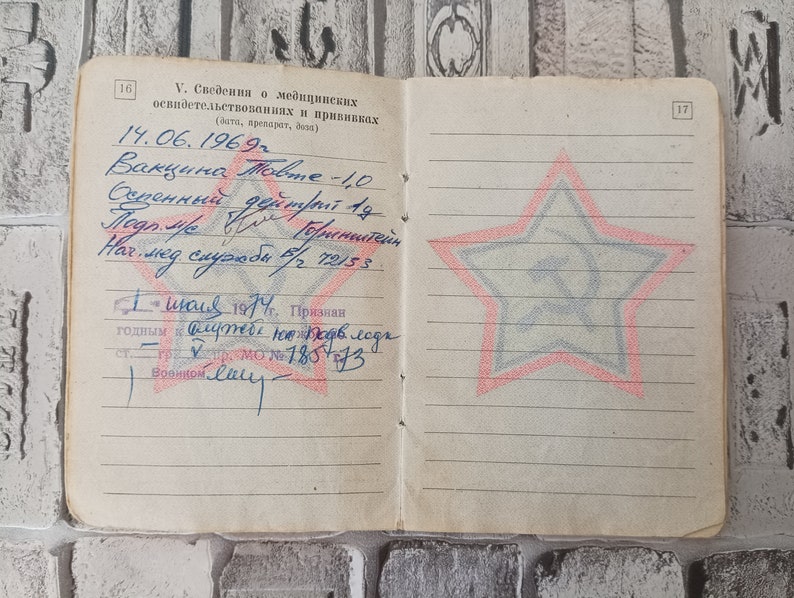 16
V. Сведения о медицинских
освидетельствованиях и прививках
(дата, препарат, доза)
14.06.1969г
Вакцина Тавте - 1,0
Оспенный детрит 1д
Подп. м/с Горинштейн
Нач. мед службы в/ч 72153
1 июля 1974 г. Признан
годным к службе на подв лодк
ст. гр. V пр. МО № 185 73
Военком
17